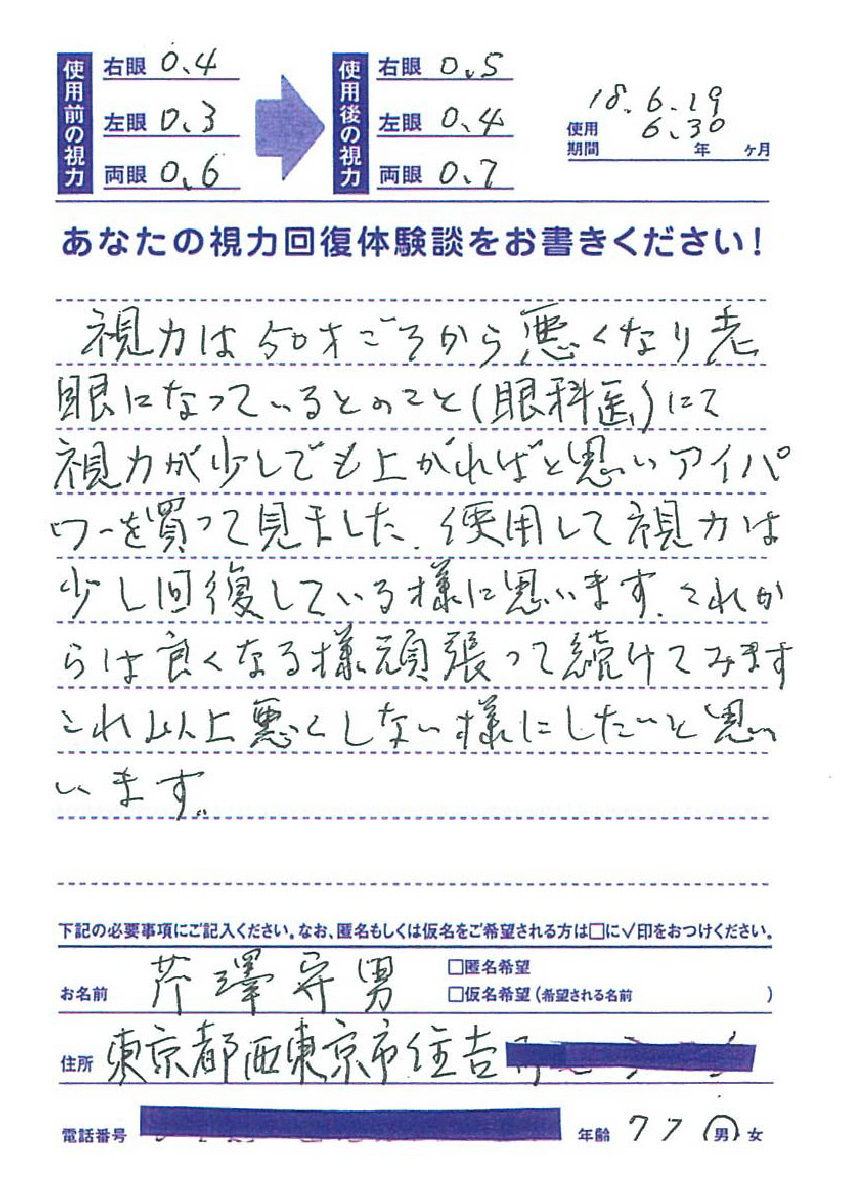 使用前の視力
右眼 0.4
左眼 0.3
両眼 0.6
使用後の視力
右眼 0.5
左眼 0.4
両眼 0.7
18.6.19
6.30
使用期間 年 ヶ月
あなたの視力回復体験談をお書きください!
視力は50才ごろから悪くなり老
眼になっているとのこと(眼科医)にて
視力が少しでも上がればと思いアイパ
ワーを買って見ました.使用して視力は
少し回復している様に思います.これか
らは良くなる様頑張って続けてみます
これ以上悪くしない様にしたいと思い
います。
下記の必要事項にご記入ください。なお、匿名もしくは仮名をご希望される方は□に✓印をおつけください。
お名前 芹澤守男
□匿名希望
□仮名希望(希望される名前 )
住所 東京都西東京市住吉
電話番号
年齢 77 男 女